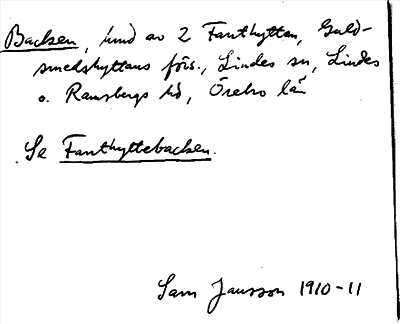 Backen, hmd av 2 Fanthyttan, Guld-
smedshyttans förs., Lindes sn, Lindes
o. Ramsbergs hd, Örebro län
Se Fanthyttebacken.
Sam Jansson 1910-11